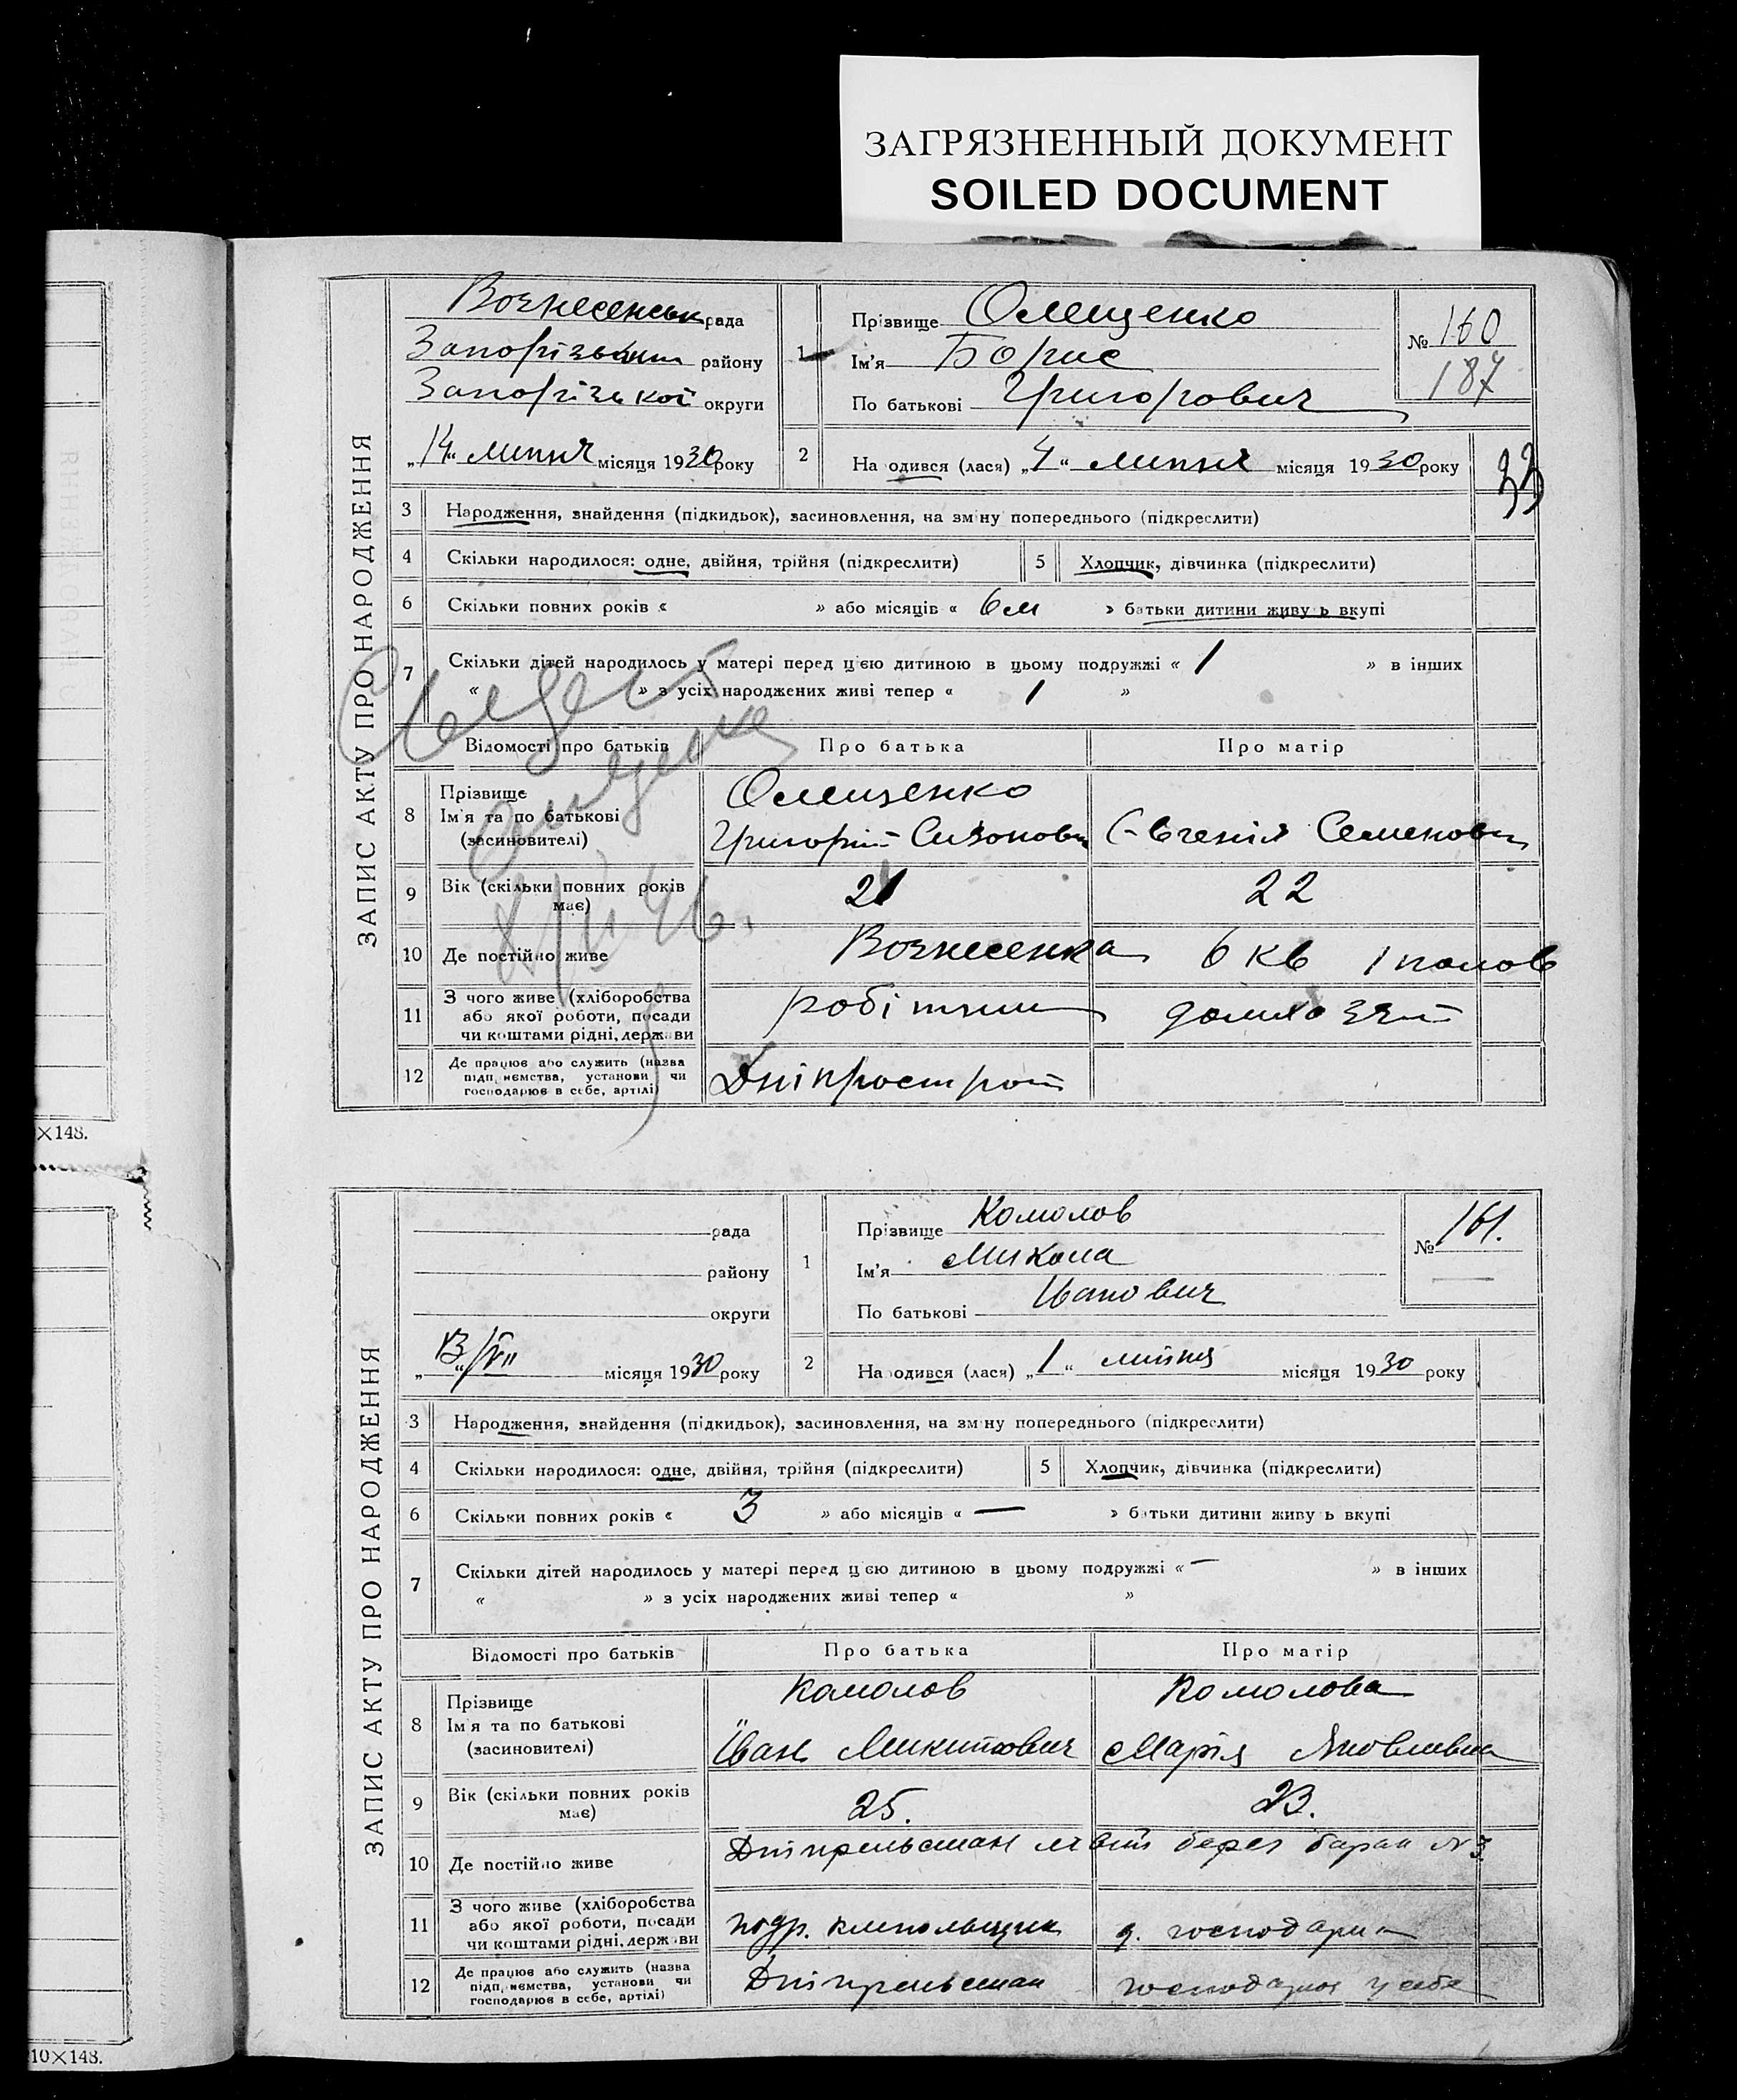 ЗАГРЯЗНЕННЫЙ ДОКУМЕНТ
SOILED DOCUMENT
ЗАПИС АКТУ ПРО НАРОДЖЕННЯ
Вознесенськ рада
району
Запорізької округи
„14“ липня місяця 1930 року
1
Прізвище Олещенко
Ім'я Борис
По батькові Григорович
№ 160
187
2
На одився (лася) „4“ липня місяця 1930 року
33
3 Народження, знайдення (підкидьок), засиновлення, на зм ну попереднього (підкреслити)
4 Скільки народилося: одне, двійня, трійня (підкреслити) 5 Хлопчик, дівчинка (підкреслити)
6 Скільки повних років « » або місяців « 6 м » батьки дитини живу ь вкупі
7 Скільки дітей народилось у матері перед цією дитиною в цьому подружжі « 1 » в інших
« » з усіх народжених живі тепер « 1 »
Відомості про батьків Про батька Про матір
8 Прізвище
Ім'я та по батькові
(засиновителі)
Олещенко
Григорій Євгенія Семеновн
9 Вік (скільки повних років
має)
21 22
10 Де постійно живе Вознесенка 6 кв
11 З чого живе (хліборобства
або якої роботи, посади
чи коштами рідні, держави
робітник
12 Де працює або служить (назва
підп иємства, установи чи
господарює в себе, артілі)
Дніпрострой
46.
×148.
ЗАПИС АКТУ ПРО НАРОДЖЕННЯ
рада
району
округи
„13“/VII місяця 1930 року
1
Прізвище Комолов
Ім'я Микола
По батькові Іванович
№ 161.
2
На одився (лася) „1“ липня місяця 1930 року
3 Народження, знайдення (підкидьок), засиновлення, на зм ну попереднього (підкреслити)
4 Скільки народилося: одне, двійня, трійня (підкреслити) 5 Хлопчик, дівчинка (підкреслити)
6 Скільки повних років « 3 » або місяців « — » батьки дитини живу ь вкупі
7 Скільки дітей народилось у матері перед цією дитиною в цьому подружжі « — » в інших
« » з усіх народжених живі тепер « »
Відомості про батьків Про батька Про матір
8 Прізвище
Ім'я та по батькові
(засиновителі)
Комолов Комолова
Іван Микитович Марія Яковлевна
9 Вік (скільки повних років
має)
25. 23.
10 Де постійно живе Дніпрельстан лівий берег барак №3.
11 З чого живе (хліборобства
або якої роботи, посади
чи коштами рідні, держави
подр. д. господарка
12 Де працює або служить (назва
підп иємства, установи чи
господарює в себе, артілі)
Дніпрельстан господарює у себе
10×148.